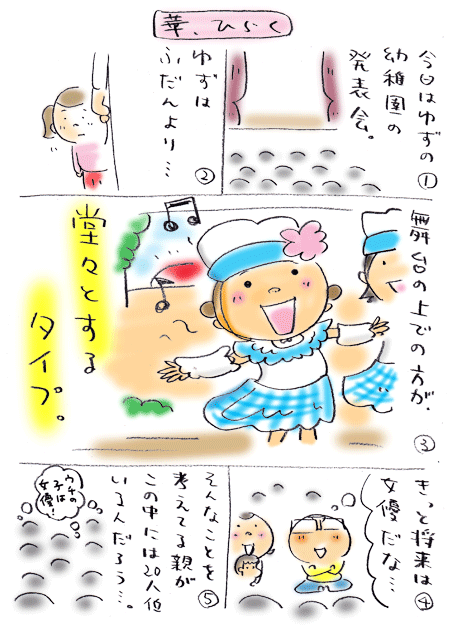 華、ひらく
今日はゆずの
幼稚園の
発表会。
①
ゆずは
ふだんより…
②
舞台の上での方が、
堂々とする
タイプ。
③
きっと将来は
女優だな…
④
そんなことを
考えてる親が
この中には20人位
いるんだろう…。
⑤
ウチの
子は
女優!